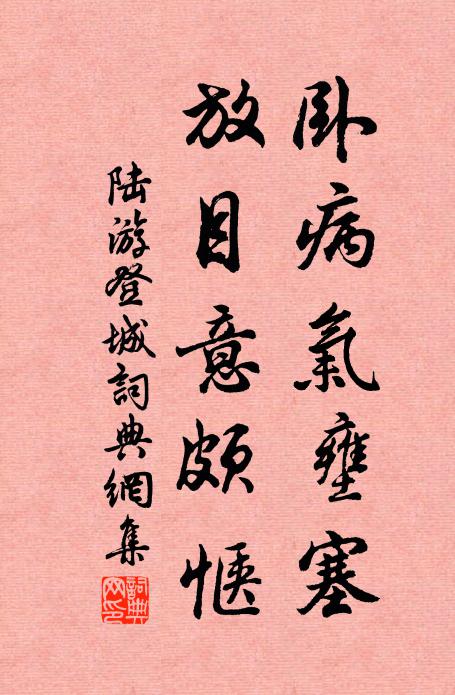 卧病氣壅塞
放目意頗愜
陆游登城詞典網集
詞典網印